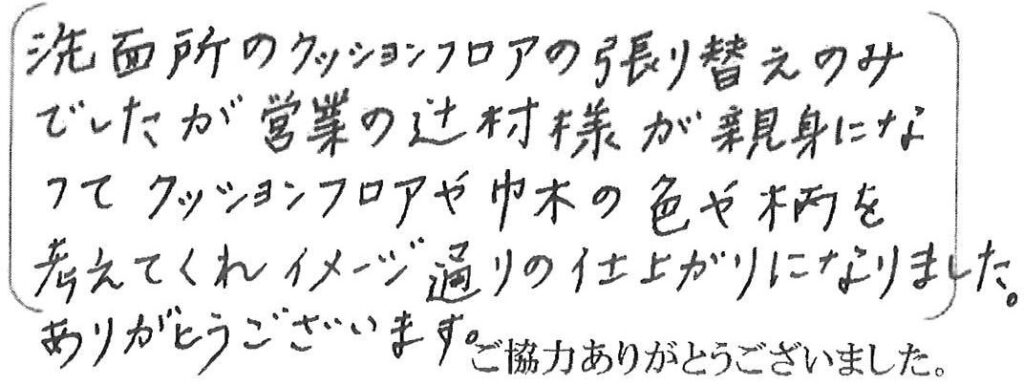 洗面所のクッションフロアの張り替えのみ
でしたが営業の辻村様が親身にな
ってクッションフロアや巾木の色や柄を
考えてくれイメージ通りの仕上がりになりました。
ありがとうございます。
ご協力ありがとうございました。